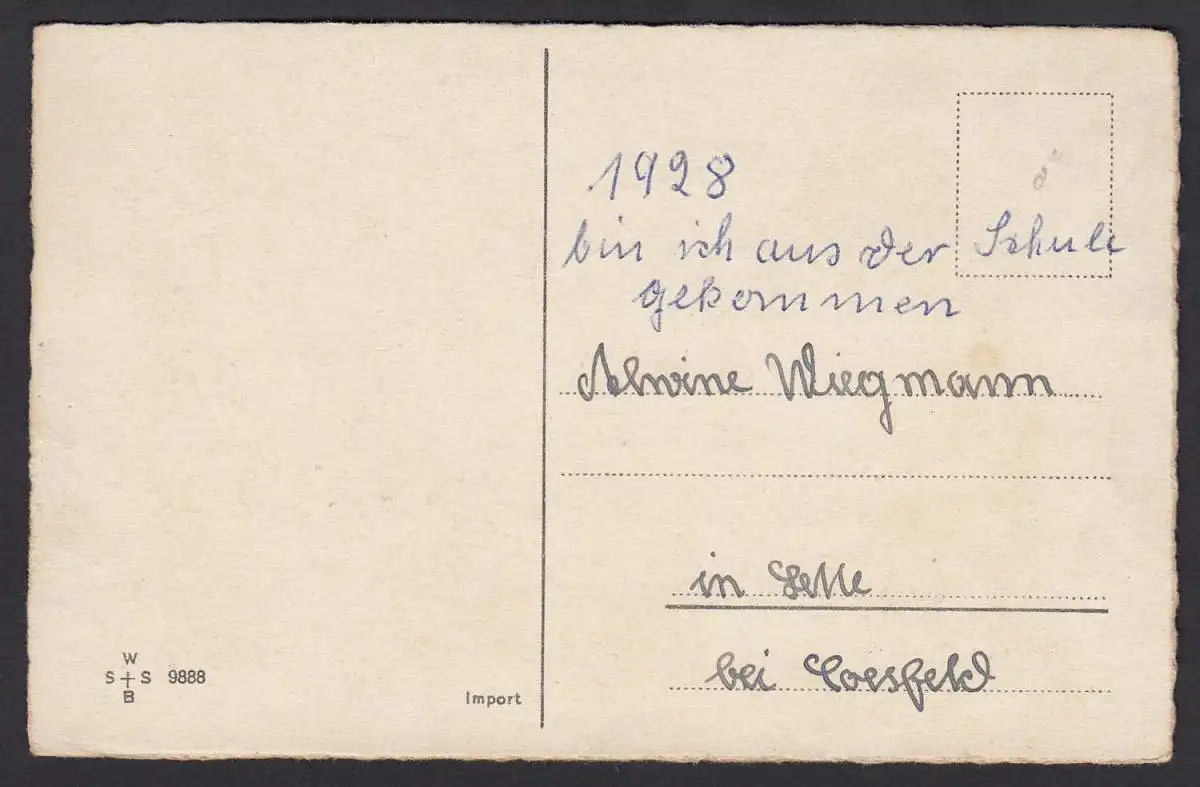 1928
bin ich aus der Schule
gekommen
Alwine Wiegmann
in Lette
bei Coesfeld
W
S S 9888
B
Import